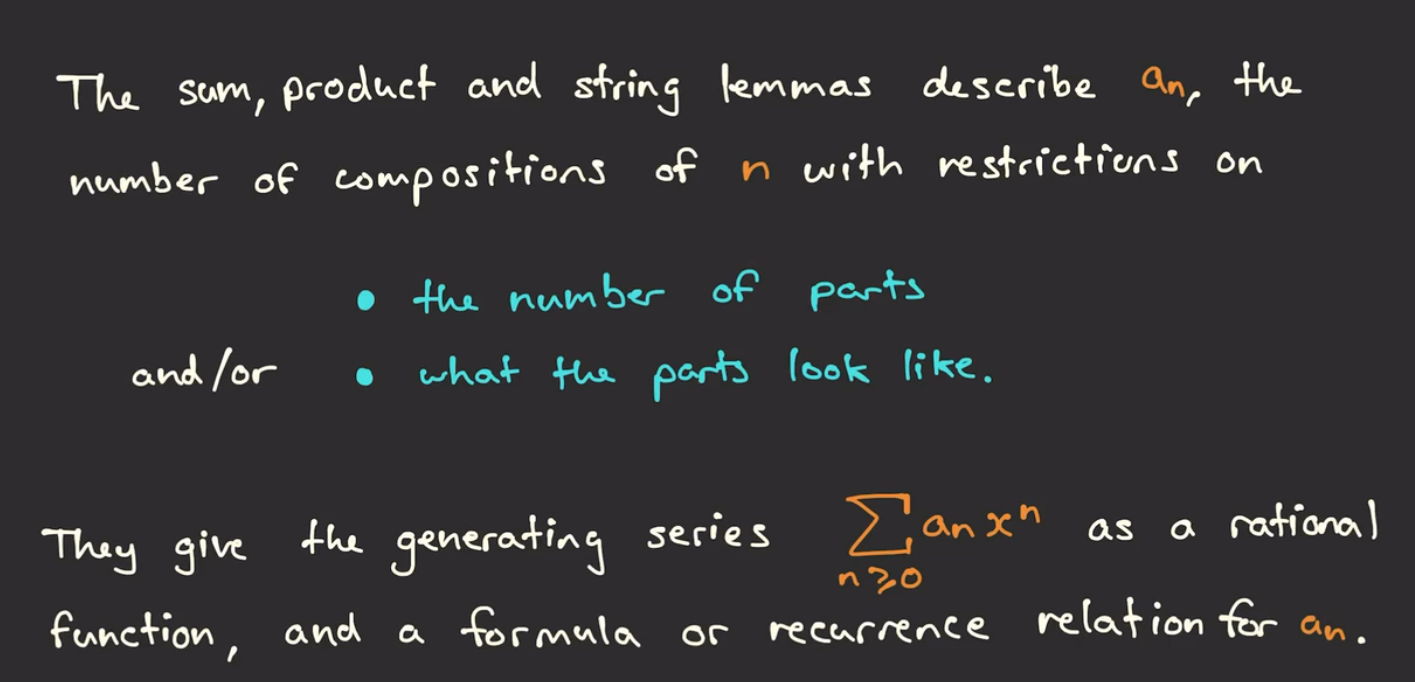 The sum, product and string lemmas describe aₙ, the
number of compositions of n with restrictions on
• the number of parts
and/or • what the parts look like.
They give the generating series ∑ aₙxⁿ as a rational
n⩾0
function, and a formula or recurrence relation for aₙ.